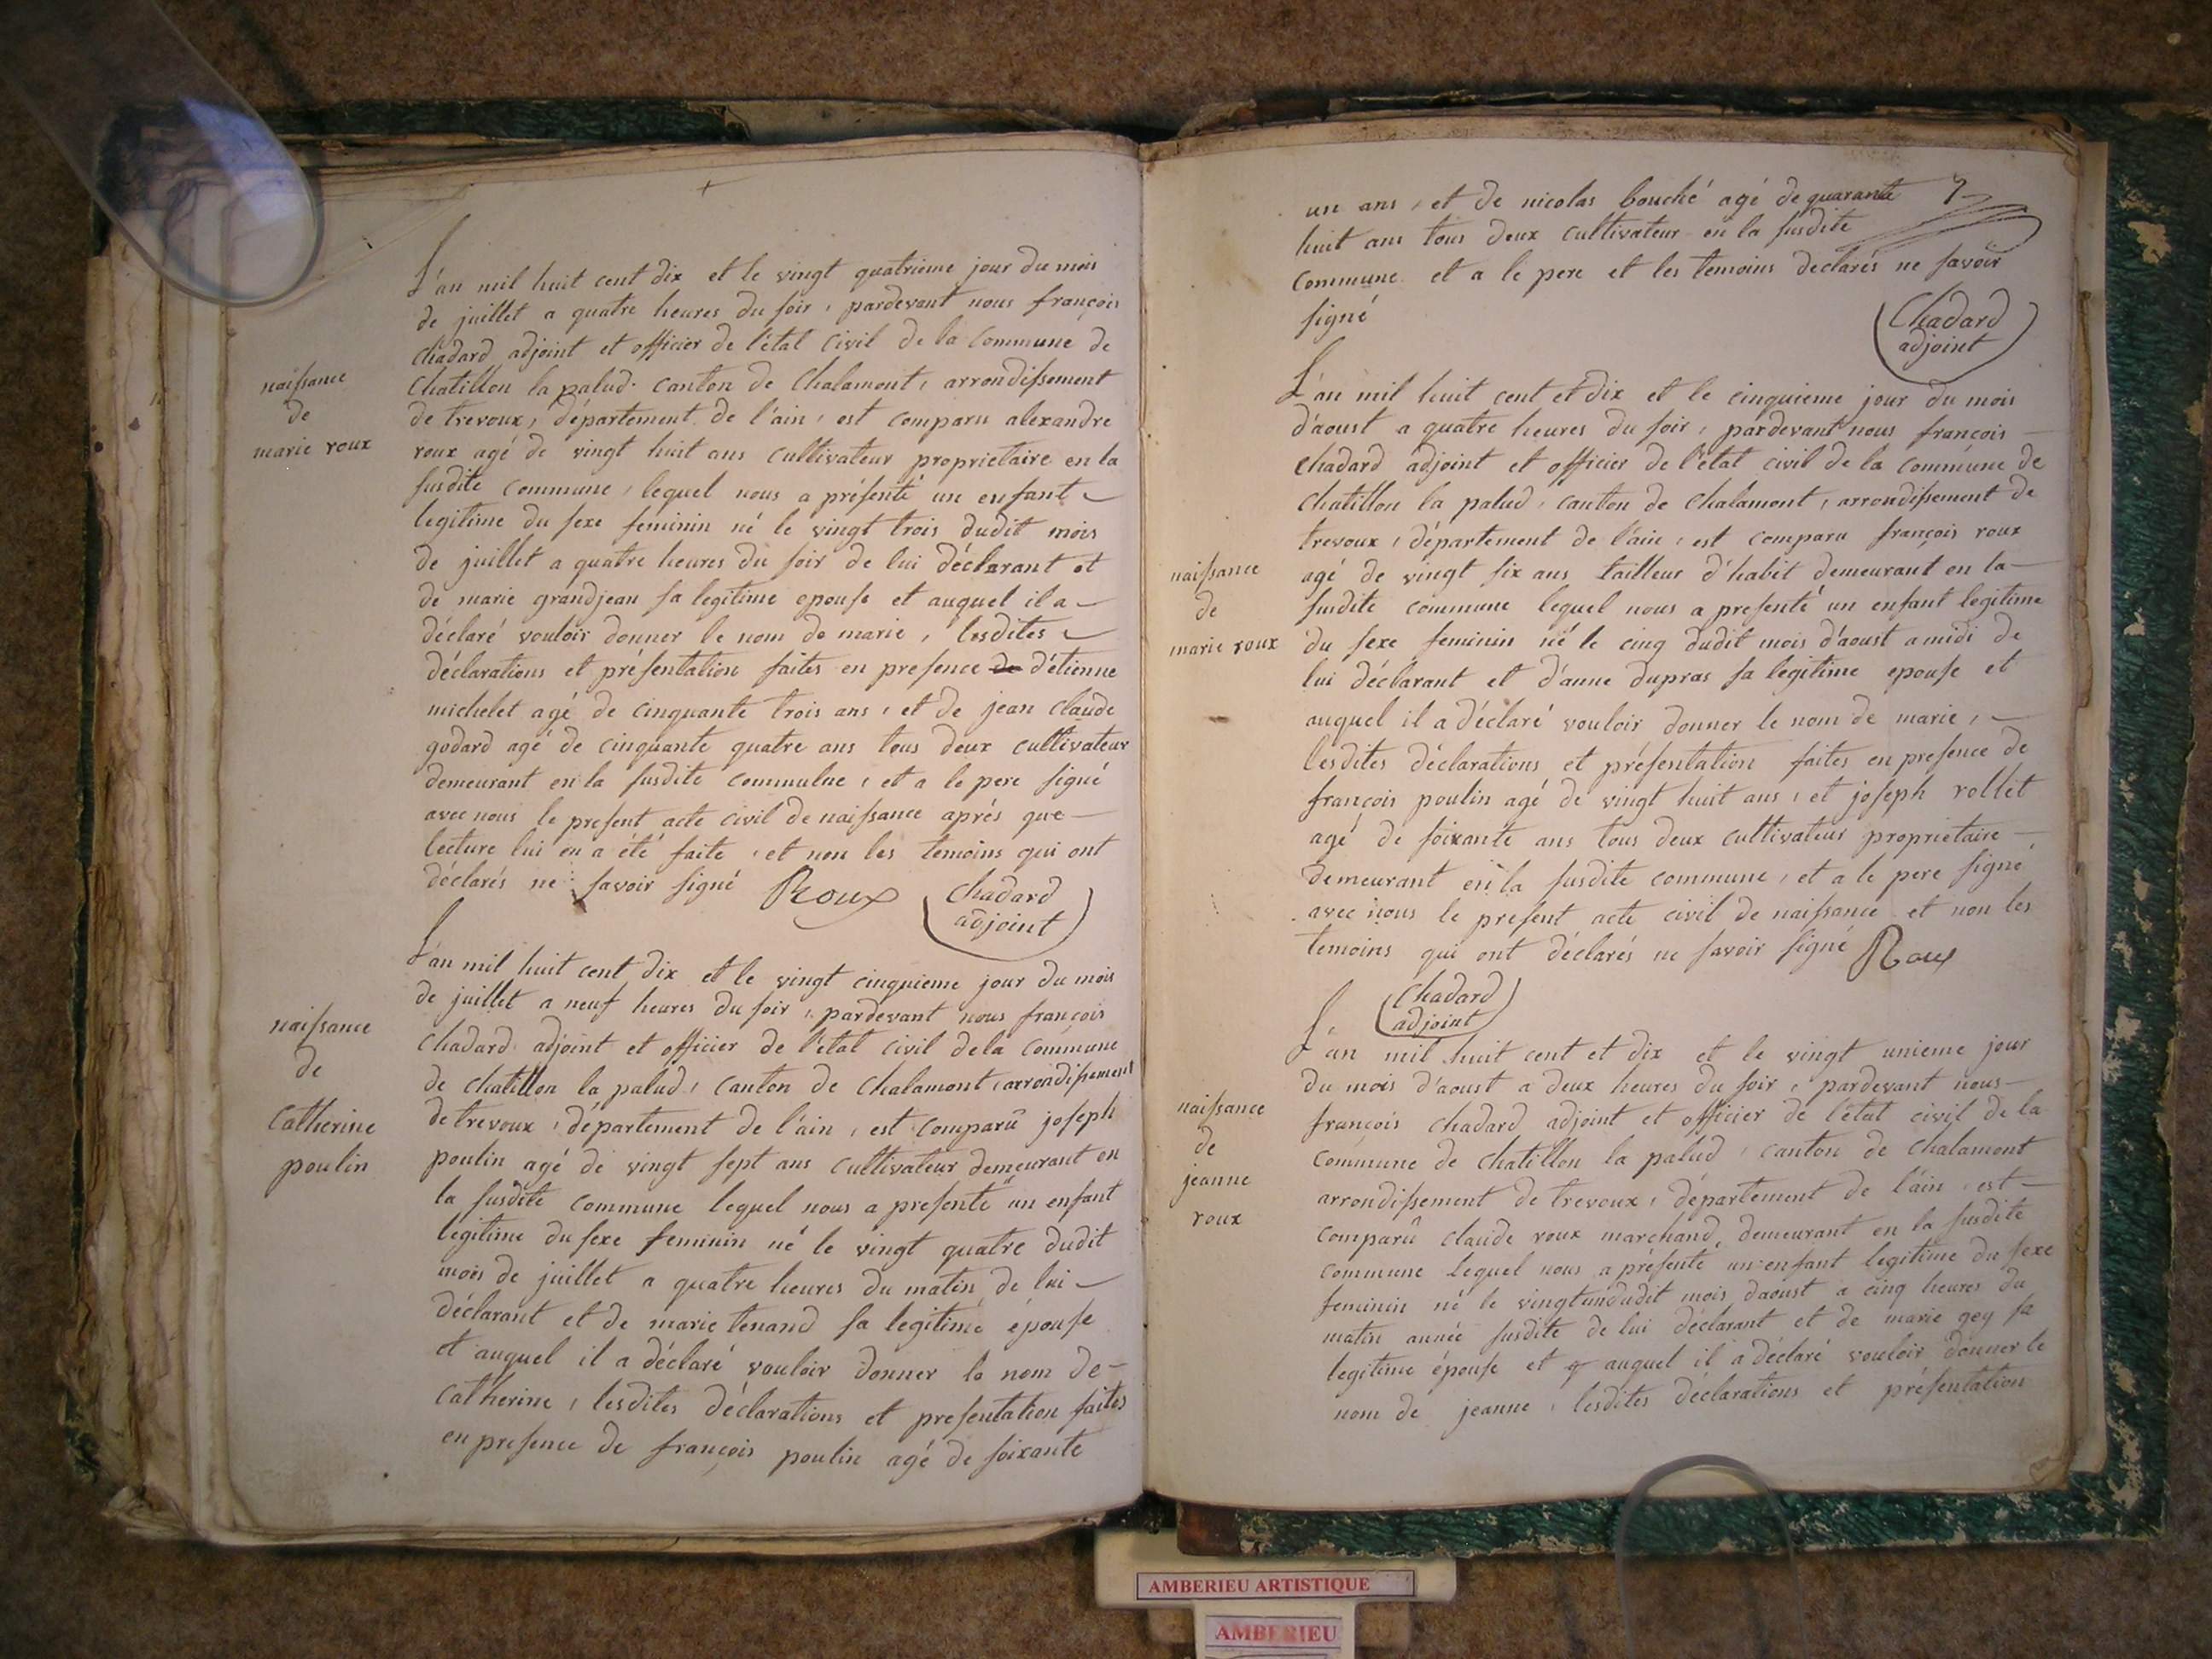 naissance
de
marie roux
L'an mil huit cent dix et le vingt quatrieme jour du mois
de juillet a quatre heures du soir, pardevant nous françois
chadard adjoint et officier de l'état civil de la commune de
Chatillon la palud. canton de Chalamont, arrondissement
de trevoux, département de l'ain, est comparu alexandre
roux agé de vingt huit ans cultivateur proprietaire en la
susdite commune, lequel nous a présenté un enfant
legitime du sexe feminin né le vingt trois dudit mois
de juillet a quatre heures du soir de lui déclarant et
de marie grandjean sa legitime epouse et auquel il a
déclaré vouloir donner le nom de marie, lesdites
déclarations et présentation faites en presence de d'étienne
michelet agé de cinquante trois ans, et de jean claude
godard agé de cinquante quatre ans tous deux cultivateur
demeurant en la susdite commulne, et a le pere signé
avec nous le present acte civil de naissance aprés que
lecture lui en a été faite, et non les temoins qui ont
déclarés ne savoir signé Roux
Chadard
adjoint
naissance
de
Catherine
poulin
L'an mil huit cent dix et le vingt cinquieme jour du mois
de juillet a neuf heures du soir, pardevant nous françois
Chadard adjoint et officier de l'état civil de la commune
de chatillon la palud, canton de Chalamont, arrondissement
de trevoux, département de l'ain, est comparû joseph
poulin agé de vingt sept ans cultivateur demeurant en
la susdite commune lequel nous a presenté un enfant
legitime du sexe feminin né le vingt quatre dudit
mois de juillet a quatre heures du matin de lui
déclarant et de marie tenand sa legitime épouse
et auquel il a déclaré vouloir donner le nom de
Catherine, lesdites déclarations et presentation faites
en presence de françois poulin agé de soixante
7
un ans, et de nicolas bouché agé de quarante
huit ans tous deux cultivateur en la susdite
Commune et a le pere et les temoins declarés ne savoir
signé
Chadard
adjoint
naissance
de
marie roux
L'an mil huit cent et dix et le cinquieme jour du mois
d'aoust a quatre heures du soir, pardevant nous françois
chadard adjoint et officier de l'état civil de la commune de
chatillon la palud, canton de chalamont, arrondissement de
trevoux, département de l'ain, est comparu françois roux
agé de vingt six ans tailleur d'habit demeurant en la
susdite commune lequel nous a presenté un enfant legitime
du sexe feminin né le cinq dudit mois d'aoust a midi de
lui déclarant et d'anne dupras sa legitime epouse et
auquel il a déclaré vouloir donner le nom de marie,
lesdites déclarations et présentation faites en presence de
françois poulin agé de vingt huit ans, et joseph rollet
agé de soixante ans tous deux cultivateur proprietaire
demeurant en la susdite commune, et a le pere signé
avec nous le present acte civil de naissance et non les
temoins qui ont déclarés ne savoir signé Roux
Chadard
adjoint
naissance
de
jeanne
roux
L'an mil huit cent et dix et le vingt unieme jour
du mois d'aoust a deux heures du soir, pardevant nous
françois chadard adjoint et officier de l'état civil de la
commune de chatillon la palud, canton de chalamont
arrondissement de trevoux, département de l'ain, est
comparû claude roux marchand, demeurant en la susdite
commune lequel nous a présenté un enfant legitime du sexe
feminin né le vingt un dudit mois daoust a cinq heures du
matin année susdite de lui déclarant et de marie gey sa
legitime épouse et auquel il a déclaré vouloir donner le
nom de jeanne, lesdites déclarations et présentation
AMBERIEU ARTISTIQUE
AMBERIEU